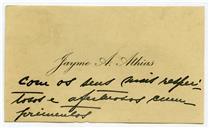 Jayme A. Athias
com os seus mais respei-
tosos e afectuosos cum-
primentos